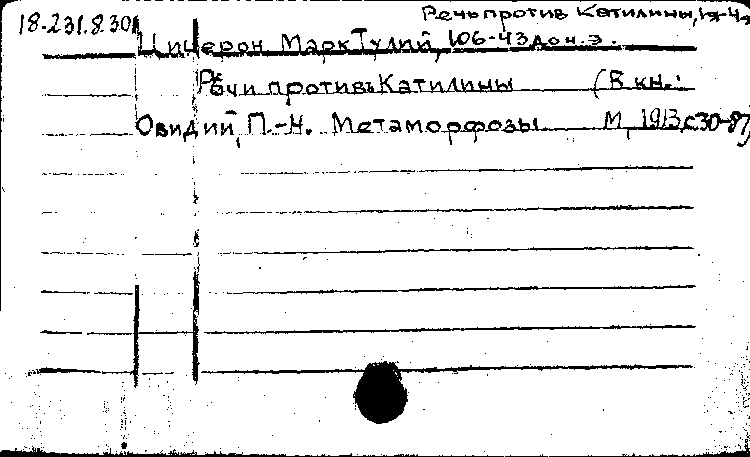 Речь против Катилины,
18-231.8.30
Цицерон Марк Туллий, 106-43 до н.э.
Речи противъ Катилины (В кн.:
Овидий, П.-Н. Метаморфозы М, 1913, с30-87)